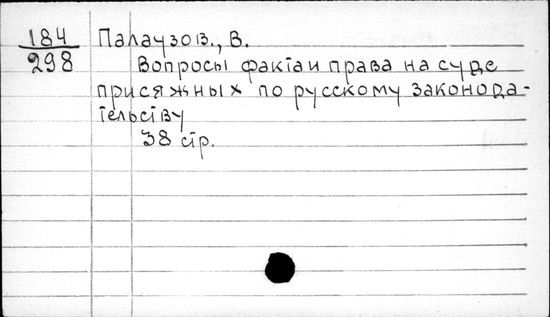 184
298
Палаузов., В.
Вопросы факта и права на суде
присяжных по русскому законода-
тельству
38 стр.